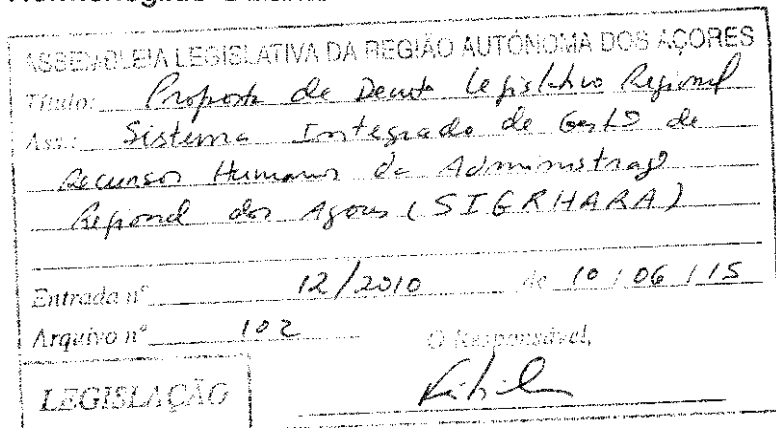 ASSEMBLEIA LEGISLATIVA DA REGIÃO AUTÓNOMA DOS AÇORES
Título: Proposta de Decreto Legislativo Regional
Ass.: Sistema Integrado de Gestão de
Recursos Humanos da Administração
Regional dos Açores (SIGRHARA)
Entrada nº 12/2010 de 10 / 06 / 15
Arquivo nº 102
O Responsável,
LEGISLAÇÃO